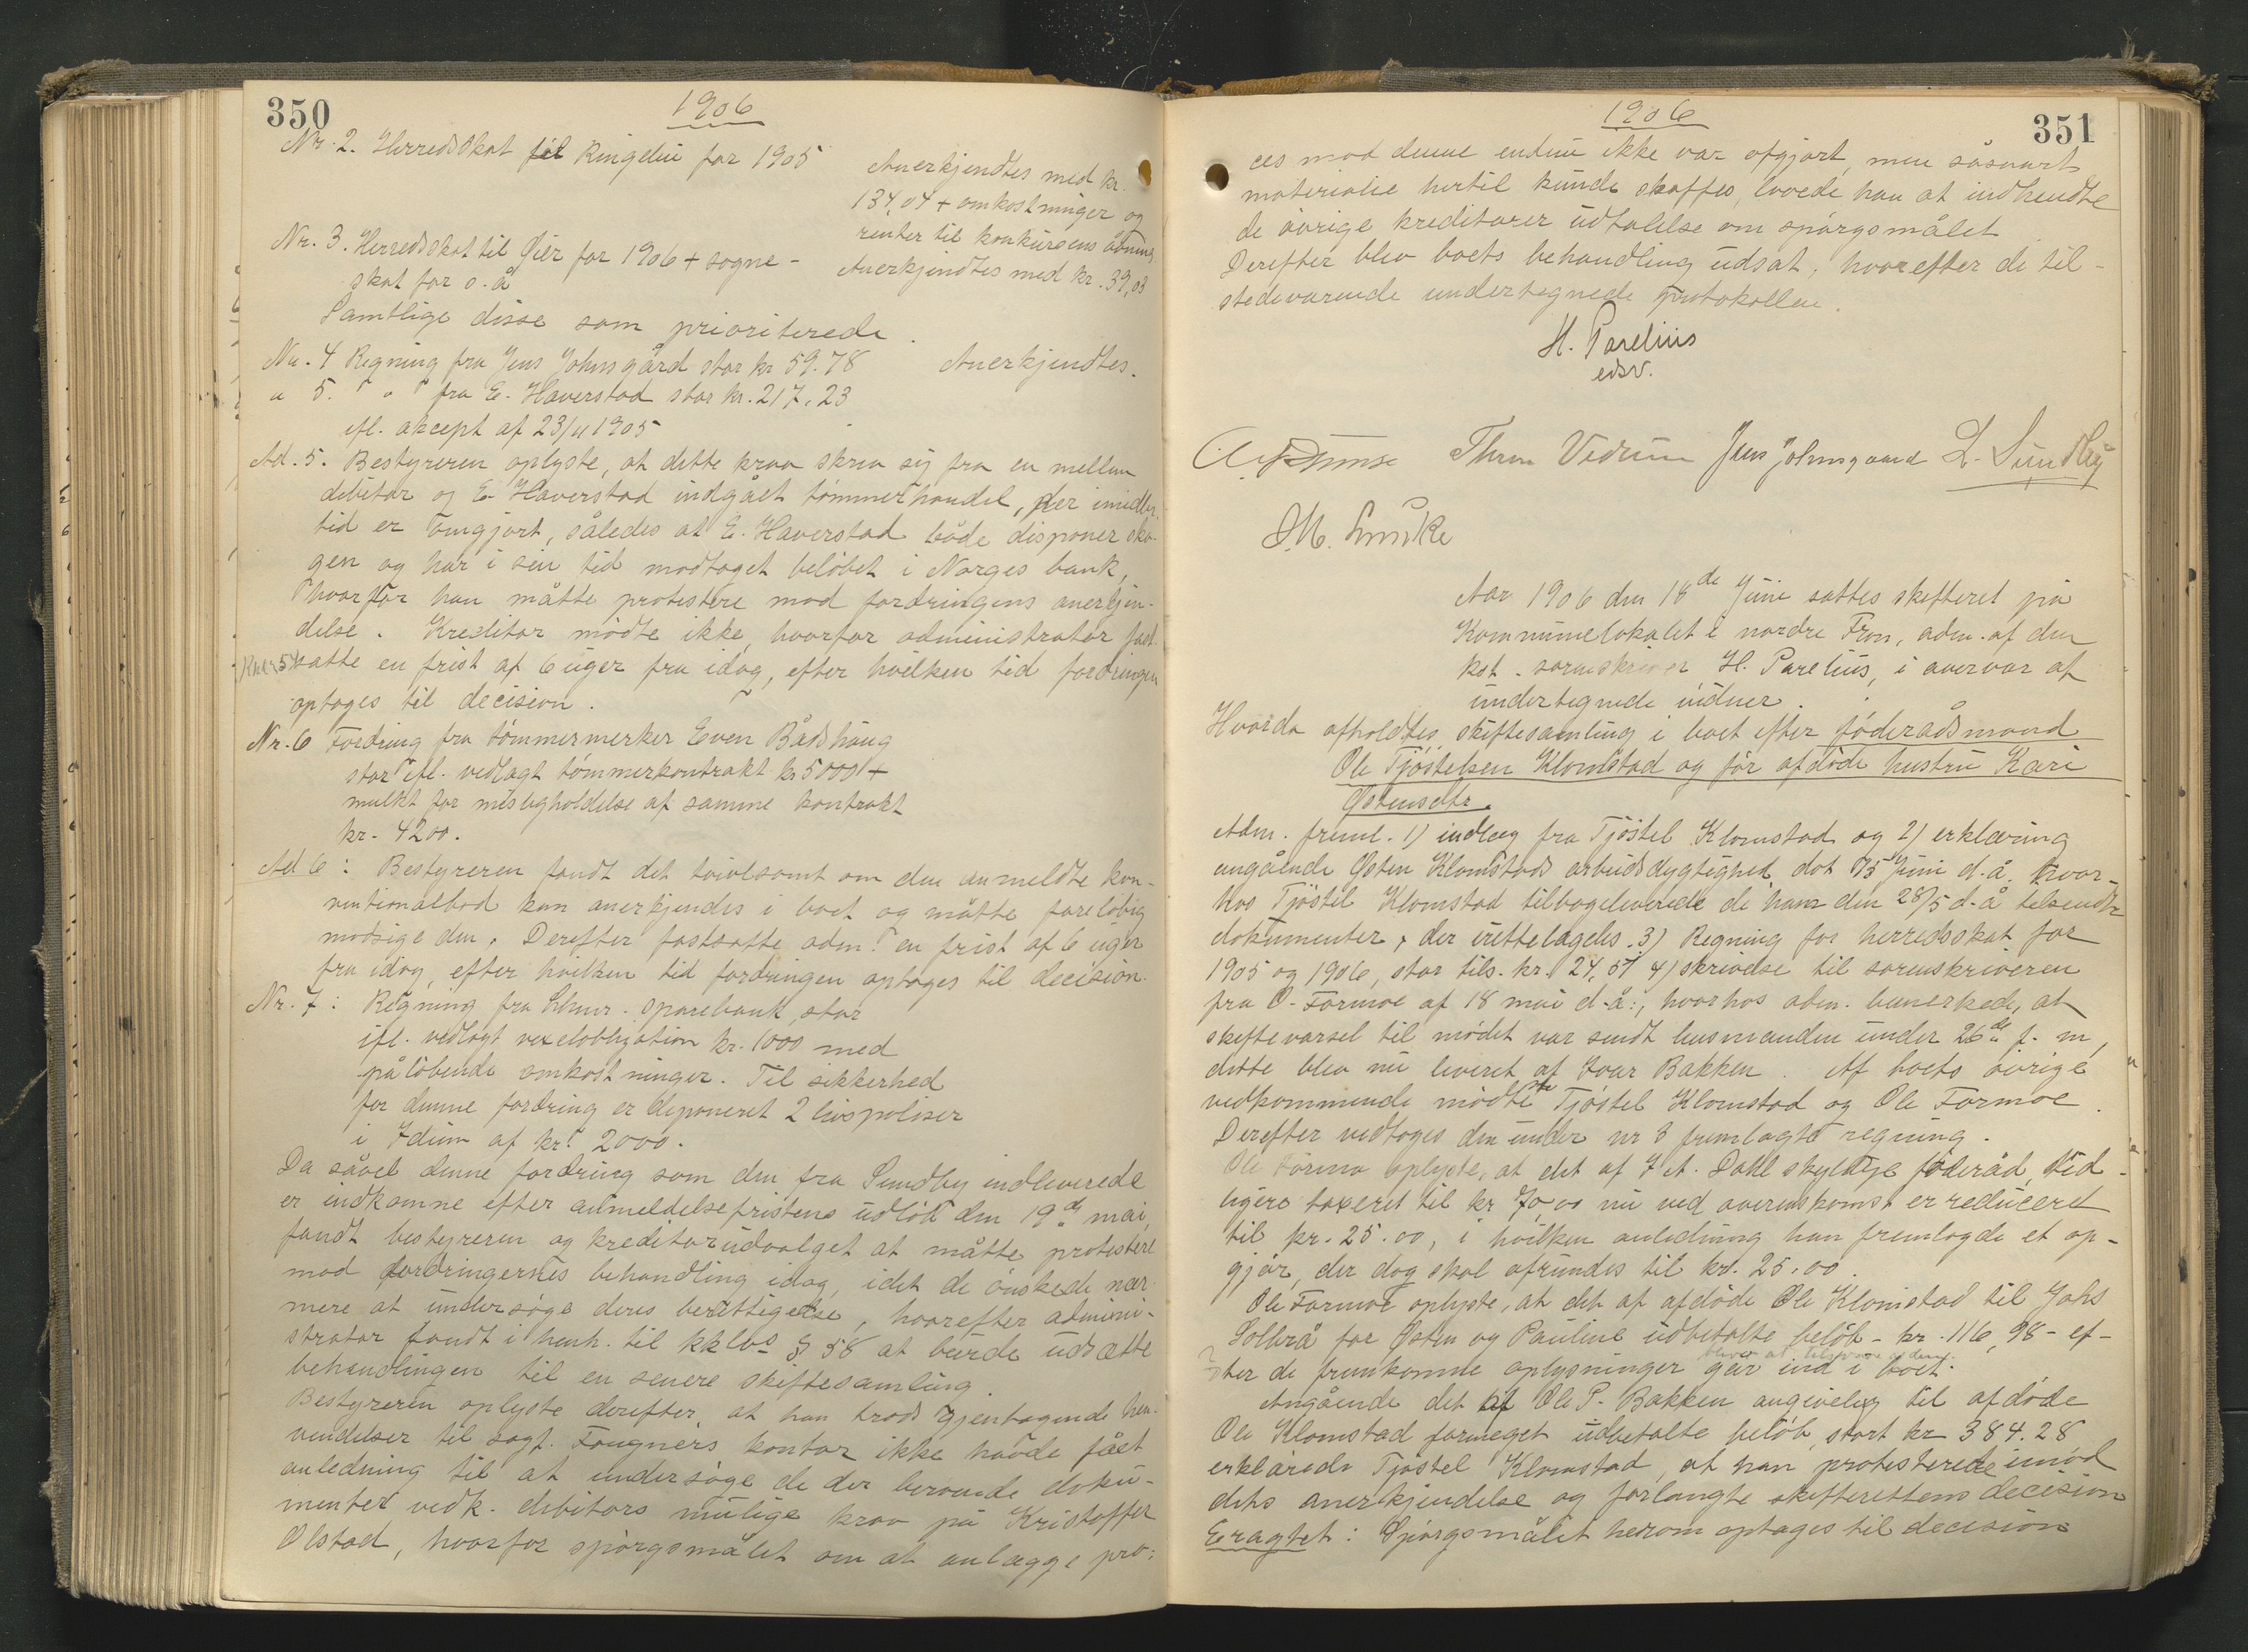 350
1906
Nr. 2. Herredsskat til Ringebu for 1905
Anerkjendtes med kr.
134,04 + omkostninger og
renter til konkursens åbning
Nr. 3. Herredsskat til Øier for 1906 + sogne-
skat for s. å
Anerkjendtes med kr. 39,03
Samtlige disse som prioriterede.
No. 4 Regning fra Jens Johnsgård stor kr 59.78
Anerkjendtes.
" 5. " " fra E. Haverstad stor kr. 217,23
ifl. akcept af 23/11 1905
Ad. 5. Bestyreren oplyste, at dette krav skrev sig fra en mellem
debitor og E. Haverstad indgået tømmerhandel, der imidler-
tid er omgjort, således at E. Haverstad både disponer sko-
gen og har i sin tid modtaget beløbet i Norges bank,
hvorfor han måtte protestere mod fordringens anerkjen-
delse. Kreditor mødte ikke, hvorfor administrator fast-
satte en frist af 6 uger fra idag, efter hvilken tid fordringen
optages til decision.
Nr. 6 Fordring fra tømmermerker Even Bådshaug
stor ifl. vedlagt tømmerkontrakt kr 5000 +
mulkt for misligholdelse af samme kontrakt
kr. 4200.
Ad 6: Bestyreren fandt det tvivlsomt om den anmeldte kon-
ventionalbod kan anerkjendes i boet og måtte foreløbig
modsige den. Derefter fastsatte adm. en frist af 6 uger
fra idag, efter hvilken tid fordringen optages til decision.
Nr. 7: Regning fra Lhmr. sparebank, stor
ifl. vedlagt vexelobligation kr. 1000 med
påløbende omkostninger. Til sikkerhed
for denne fordring er deponeret 2 livspoliser
i Idun af kr. 2000.
Da såvel denne fordring som den fra Sundby indleverede
er indkomne efter anmeldelsefristens udløb den 19de mai,
fandt bestyreren og kreditorudvalget at måtte protestere
mod fordringernes behandling idag, idet de ønskede nær-
mere at undersøge deres berettigelse, hvorefter admini-
strator fandt i henh. til kklvs § 58 at burde udsætte
behandlingen til en senere skiftesamling.
Bestyreren oplyste derefter, at han trods gjentagende hen-
vendelser til sagf. Fougners kontor ikke havde fået
anledning til at undersøge de der beroende doku-
menter vedk. debitors mulige krav på Kristoffer
Olstad, hvorfor spørgsmålet om at anlægge pro-
351
1906
ces mod denne endnu ikke var afgjort, men såsnart
materialie hertil kunde skaffes, lovede han at indhendte
de øvrige kreditorer udtalelse om spørgsmålet
Derefter blev boets behandling udsat, hvorefter de til-
stedeværende undertegnede protokollen.
H. Parelius
edsv.
Thron Vedum Jens Johnsgaard L. Sundby
Aar 1906 den 18de Juni sattes skifteret på
Kommunelokalet i nordre Fron, adm. af den
kst. sorenskriver H. Parelius, i overvær af
undertegnede vidner.
Hvorda afholdtes skiftesamling i boet efter føderådsmand
Ole Tjøstelsen Klomstad og før afdøde hustru Kari
Østensdtr.
Adm. freml. 1) indlæg fra Tjøstel Klomstad og 2) erklæring
angående Østen Klomstads arbeidsdygtighed, dat 15 Juni d. å. hvor-
hos Tjøstel Klomstad tilbageleverede de ham den 28/5 d. å tilsendte
dokumenter, der irettelagdes. 3) Regning for herredsskat for
1905 og 1906, stor tils. kr. 24,57 4) skrivelse til sorenskriveren
fra O. Formoe af 18 mai d. å., hvorhos adm. bemerkede, at
skiftevarsel til mødet var sendt lensmanden under 26de f. m,
dette blev nu leveret af Ivar Bakken. Af boets øvrige
vedkommende mødte Tjøstel Klomstad og Ole Formoe.
Derefter vedtoges den under nr 3 fremlagte regning.
Ole Formo oplyste, at det af I A. Dahl skyldige føderåd, tid-
ligere taxeret til kr 70,00 nu ved overenskomst er reduceret
til kr. 25.00, i hvilken anledning han fremlagde et op-
gjør, der dog skal afrundes til kr. 25.00.
Ole Formoe oplyste, at det af afdøde Ole Klomstad til Johs
Solbrå for Østen og Pauline udbetalte beløb - kr. 116,98 - ef-
ter de fremkomne oplysninger går ind i boet.
Angående det af Ole P. Bakken angivelig til afdøde
Ole Klomstad formeget udbetalte beløb, stort kr 384.28
erklærede Tjøstel Klomstad, at han protesterede imod
dets anerkjendelse og forlangte skifterettens decision
Eragtet: Spørgsmålet herom optages til decision